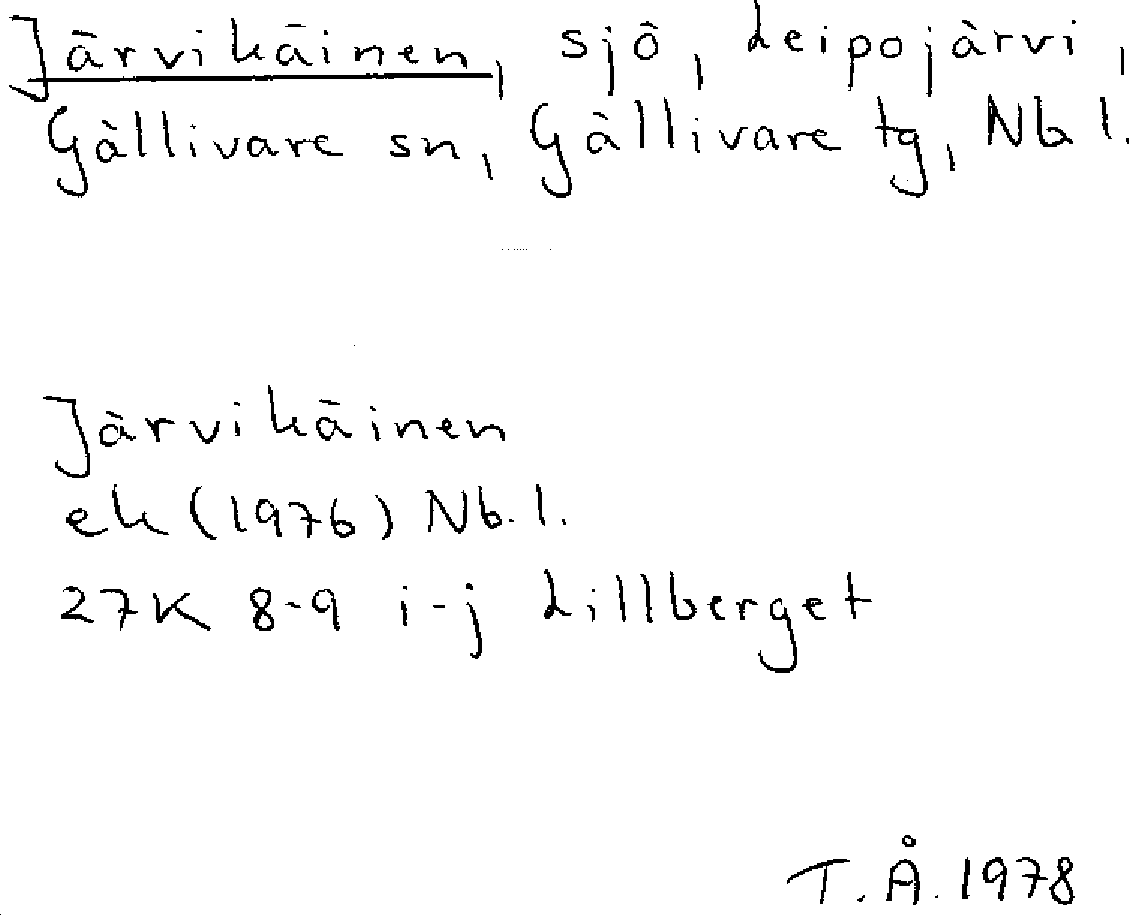 Järvikäinen, sjö, Leipojärvi,
Gällivare sn, Gällivare tg, Nb l.
Järvikäinen
ek (1976) Nb. l.
27K 8-9 i-j Lillberget
T.Å. 1978